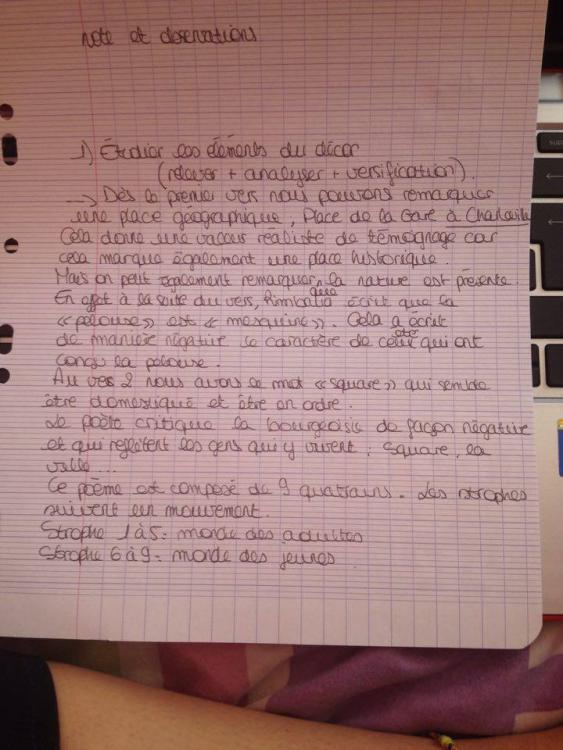 note et observations
1) Étudier les éléments du décor
(relever + analyser + versification).
→ Dès le premier vers nous pouvons remarquer
une place géographique, Place de la Gare à Charleville
Cela donne une valeur réaliste de témoignage car
cela marque également une place historique.
Mais on peut également remarquer que la nature est présente.
En effet à la suite du vers, Rimbaud écrit que la
«pelouse» est «mesquine». Cela a écrit
de manière négative le caractère de ceux qui ont
conçu la pelouse.
Au vers 2 nous avons le mot «square» qui semble
être domestiqué et être en ordre.
Le poète critique la bourgeoisie de façon négative
et qui reflètent les gens qui y vivent : square, la
ville...
Ce poème est composé de 9 quatrains. Les strophes
suivent un mouvement.
Strophe 1 à 5 : monde des adultes
Strophe 6 à 9 : monde des jeunes